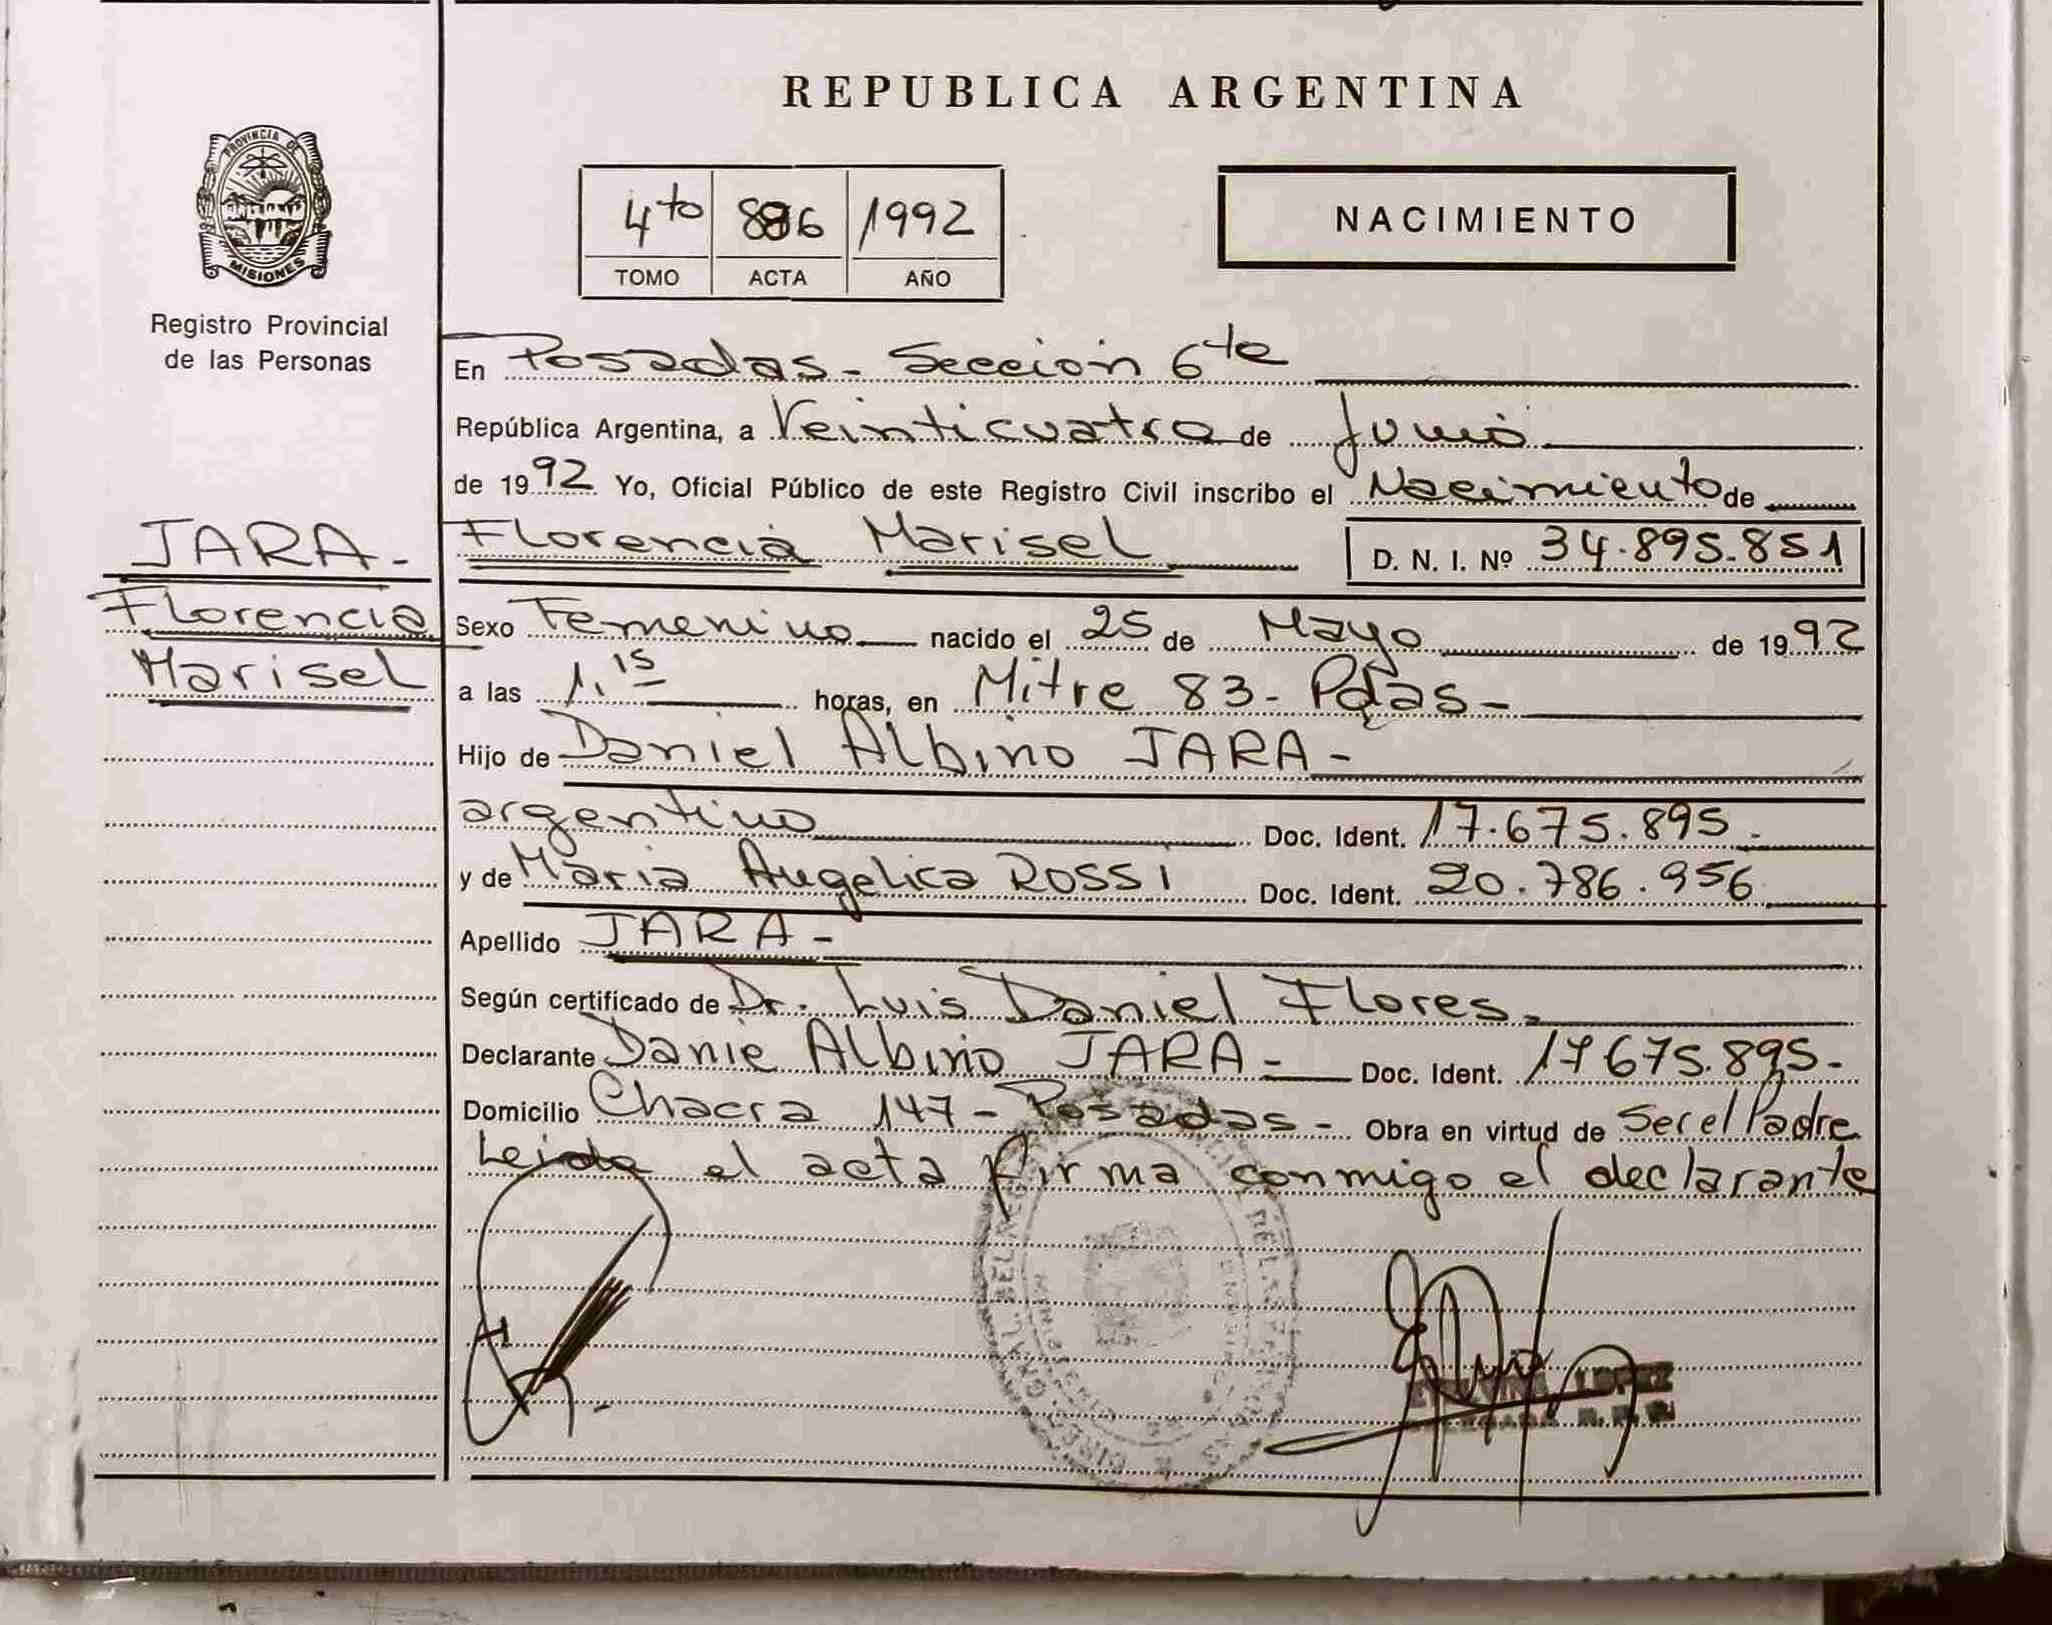 REPUBLICA ARGENTINA
PROVINCIA DE
MISIONES
Registro Provincial
de las Personas
4to 886 1992
TOMO ACTA AÑO
NACIMIENTO
En Posadas - Seccion 6ta
República Argentina, a Veinticuatro de Junio
de 1992 Yo, Oficial Público de este Registro Civil inscribo el Nacimiento de
Florencia Marisel D. N. I. Nº 34.895.851
JARA -
Florencia
Marisel
Sexo Femenino nacido el 25 de Mayo de 1992
a las 1.15 horas, en Mitre 83 - Pdas -
Hijo de Daniel Albino JARA -
argentino Doc. Ident. 17.675.895.
y de Maria Angelica ROSSI Doc. Ident. 20.786.956
Apellido JARA -
Según certificado de Dr. Luis Daniel Flores -
Declarante Danie Albino JARA - Doc. Ident. 17675.895 -
Domicilio Chacra 147 - Posadas - Obra en virtud de Ser el Padre
Leida el acta firma conmigo el declarante
LOPEZ